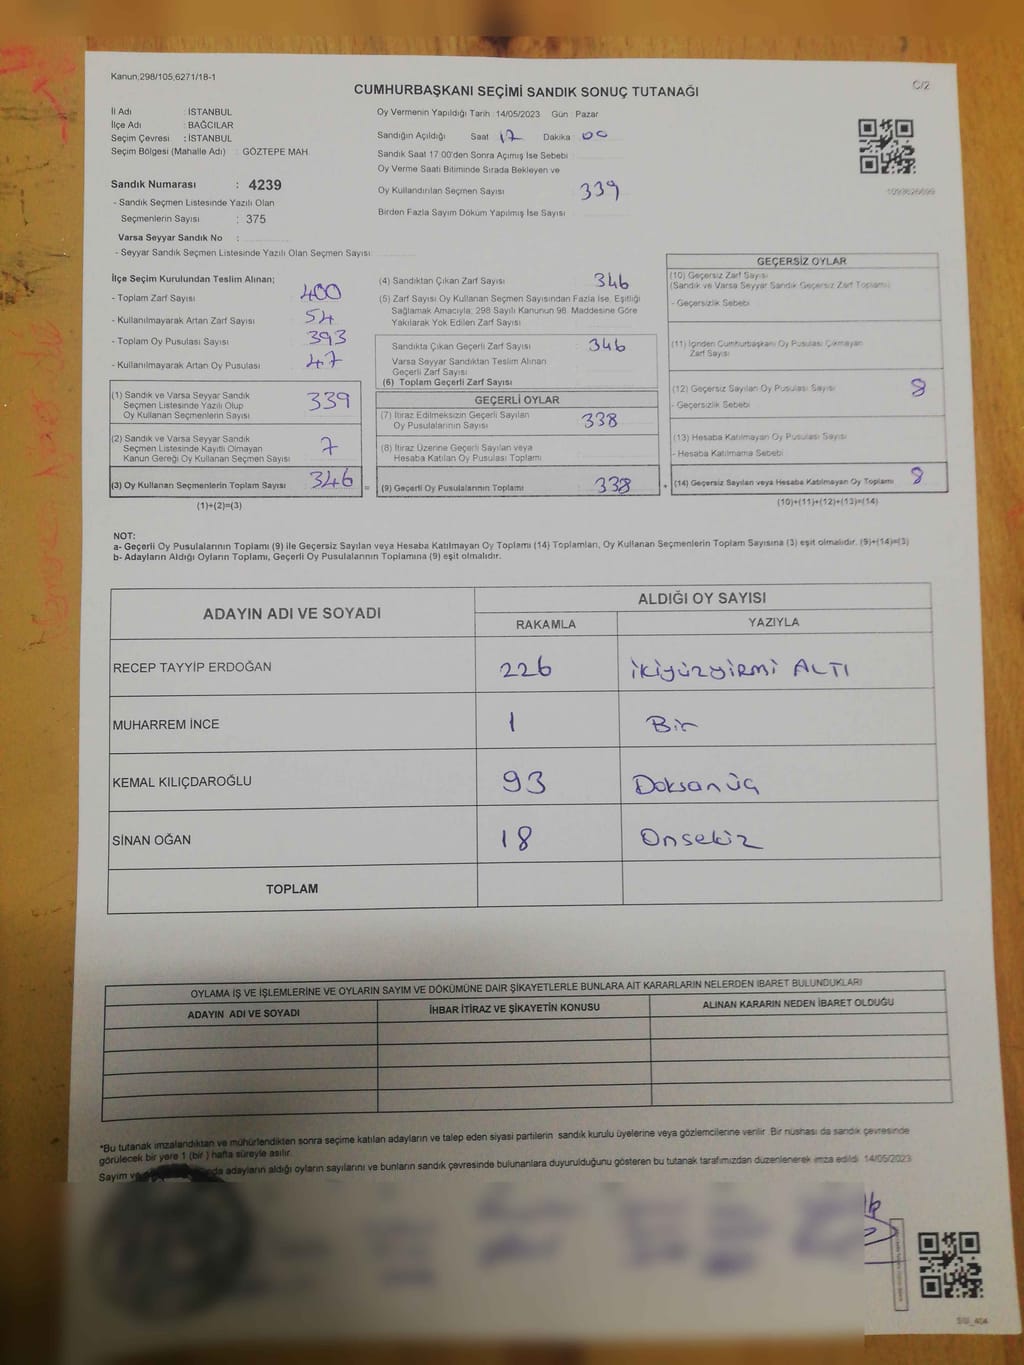 Kanun;298/105,6271/18-1
C/2
CUMHURBAŞKANI SEÇİMİ SANDIK SONUÇ TUTANAĞI
İl Adı : İSTANBUL
İlçe Adı : BAĞCILAR
Seçim Çevresi : İSTANBUL
Seçim Bölgesi (Mahalle Adı) : GÖZTEPE MAH.
Sandık Numarası : 4239
- Sandık Seçmen Listesinde Yazılı Olan
Seçmenlerin Sayısı : 375
Varsa Seyyar Sandık No :
- Seyyar Sandık Seçmen Listesinde Yazılı Olan Seçmen Sayısı
Oy Vermenin Yapıldığı Tarih :14/05/2023 Gün : Pazar
Sandığın Açıldığı Saat 17 Dakika 00
Sandık Saat 17:00'den Sonra Açımış İse Sebebi
Oy Verme Saati Bitiminde Sırada Bekleyen ve
Oy Kullandırılan Seçmen Sayısı 339
Birden Fazla Sayım Döküm Yapılmış İse Sayısı
1093626699
İlçe Seçim Kurulundan Teslim Alınan;
- Toplam Zarf Sayısı 400
- Kullanılmayarak Artan Zarf Sayısı 54
- Toplam Oy Pusulası Sayısı 393
- Kullanılmayarak Artan Oy Pusulası 47
(1) Sandık ve Varsa Seyyar Sandık
Seçmen Listesinde Yazılı Olup
Oy Kullanan Seçmenlerin Sayısı 339
(2) Sandık ve Varsa Seyyar Sandık
Seçmen Listesinde Kayıtlı Olmayan
Kanun Gereği Oy Kullanan Seçmen Sayısı 7
(3) Oy Kullanan Seçmenlerin Toplam Sayısı 346
(1)+(2)=(3)
=
(4) Sandıktan Çıkan Zarf Sayısı 346
(5) Zarf Sayısı Oy Kullanan Seçmen Sayısından Fazla İse, Eşitliği
Sağlamak Amacıyla; 298 Sayılı Kanunun 98. Maddesine Göre
Yakılarak Yok Edilen Zarf Sayısı
Sandıkta Çıkan Geçerli Zarf Sayısı 346
Varsa Seyyar Sandıktan Teslim Alınan
Geçerli Zarf Sayısı
(6) Toplam Geçerli Zarf Sayısı
GEÇERLİ OYLAR
(7) İtiraz Edilmeksizin Geçerli Sayılan
Oy Pusulalarının Sayısı 338
(8) İtiraz Üzerine Geçerli Sayılan veya
Hesaba Katılan Oy Pusulası Toplamı
(9) Geçerli Oy Pusulalarının Toplamı 338
+
GEÇERSİZ OYLAR
(10) Geçersiz Zarf Sayısı
(Sandık ve Varsa Seyyar Sandık Geçersiz Zarf Toplamı)
- Geçersizlik Sebebi
(11) İçinden Cumhurbaşkanı Oy Pusulası Çıkmayan
Zarf Sayısı
(12) Geçersiz Sayılan Oy Pusulası Sayısı 8
- Geçersizlik Sebebi
(13) Hesaba Katılmayan Oy Pusulası Sayısı
- Hesaba Katılmama Sebebi
(14) Geçersiz Sayılan veya Hesaba Katılmayan Oy Toplamı 8
(10)+(11)+(12)+(13)=(14)
NOT:
a- Geçerli Oy Pusulalarının Toplamı (9) ile Geçersiz Sayılan veya Hesaba Katılmayan Oy Toplamı (14) Toplamları, Oy Kullanan Seçmenlerin Toplam Sayısına (3) eşit olmalıdır. (9)+(14)=(3)
b- Adayların Aldığı Oyların Toplamı, Geçerli Oy Pusulalarının Toplamına (9) eşit olmalıdır.
ADAYIN ADI VE SOYADI
ALDIĞI OY SAYISI
RAKAMLA YAZIYLA
RECEP TAYYİP ERDOĞAN 226 İkiyüzyirmi ALTI
MUHARREM İNCE 1 Bir
KEMAL KILIÇDAROĞLU 93 Doksanüç
SİNAN OĞAN 18 Onsekiz
TOPLAM
OYLAMA İŞ VE İŞLEMLERİNE VE OYLARIN SAYIM VE DÖKÜMÜNE DAİR ŞİKAYETLERLE BUNLARA AİT KARARLARIN NELERDEN İBARET BULUNDUKLARI
ADAYIN ADI VE SOYADI İHBAR İTİRAZ VE ŞİKAYETİN KONUSU ALINAN KARARIN NEDEN İBARET OLDUĞU
*Bu tutanak imzalandıktan ve mühürlendikten sonra seçime katılan adayların ve talep eden siyasi partilerin sandık kurulu üyelerine veya gözlemcilerine verilir. Bir nüshası da sandık çevresinde
görülecek bir yere 1 (bir ) hafta süreyle asılır.
Sayım ve adayların aldığı oyların sayılarını ve bunların sandık çevresinde bulunanlara duyurulduğunu gösteren bu tutanak tarafımızdan düzenlenerek imza edildi. 14/05/2023